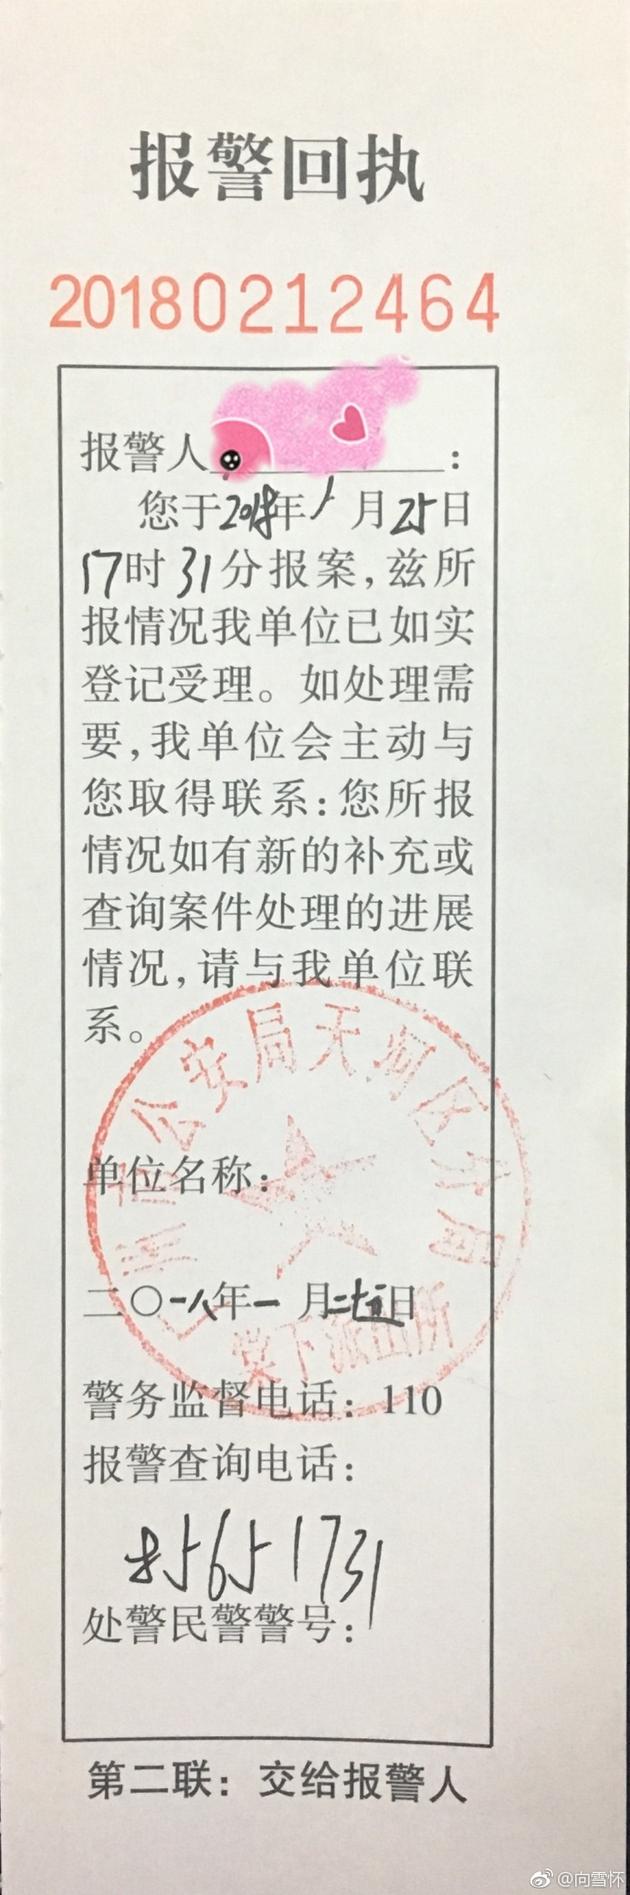 报警回执
20180212464
报警人            :
您于2018年1月25日
17时31分报案,兹所
报情况我单位已如实
登记受理。如处理需
要,我单位会主动与
您取得联系:您所报
情况如有新的补充或
查询案件处理的进展
情况,请与我单位联
系。
市公安局天河区分局
单位名称:
二〇一八年一月二十五日
棠下派出所
警务监督电话: 110
报警查询电话:
85651731
处警民警警号:
第二联: 交给报警人
@向雪怀